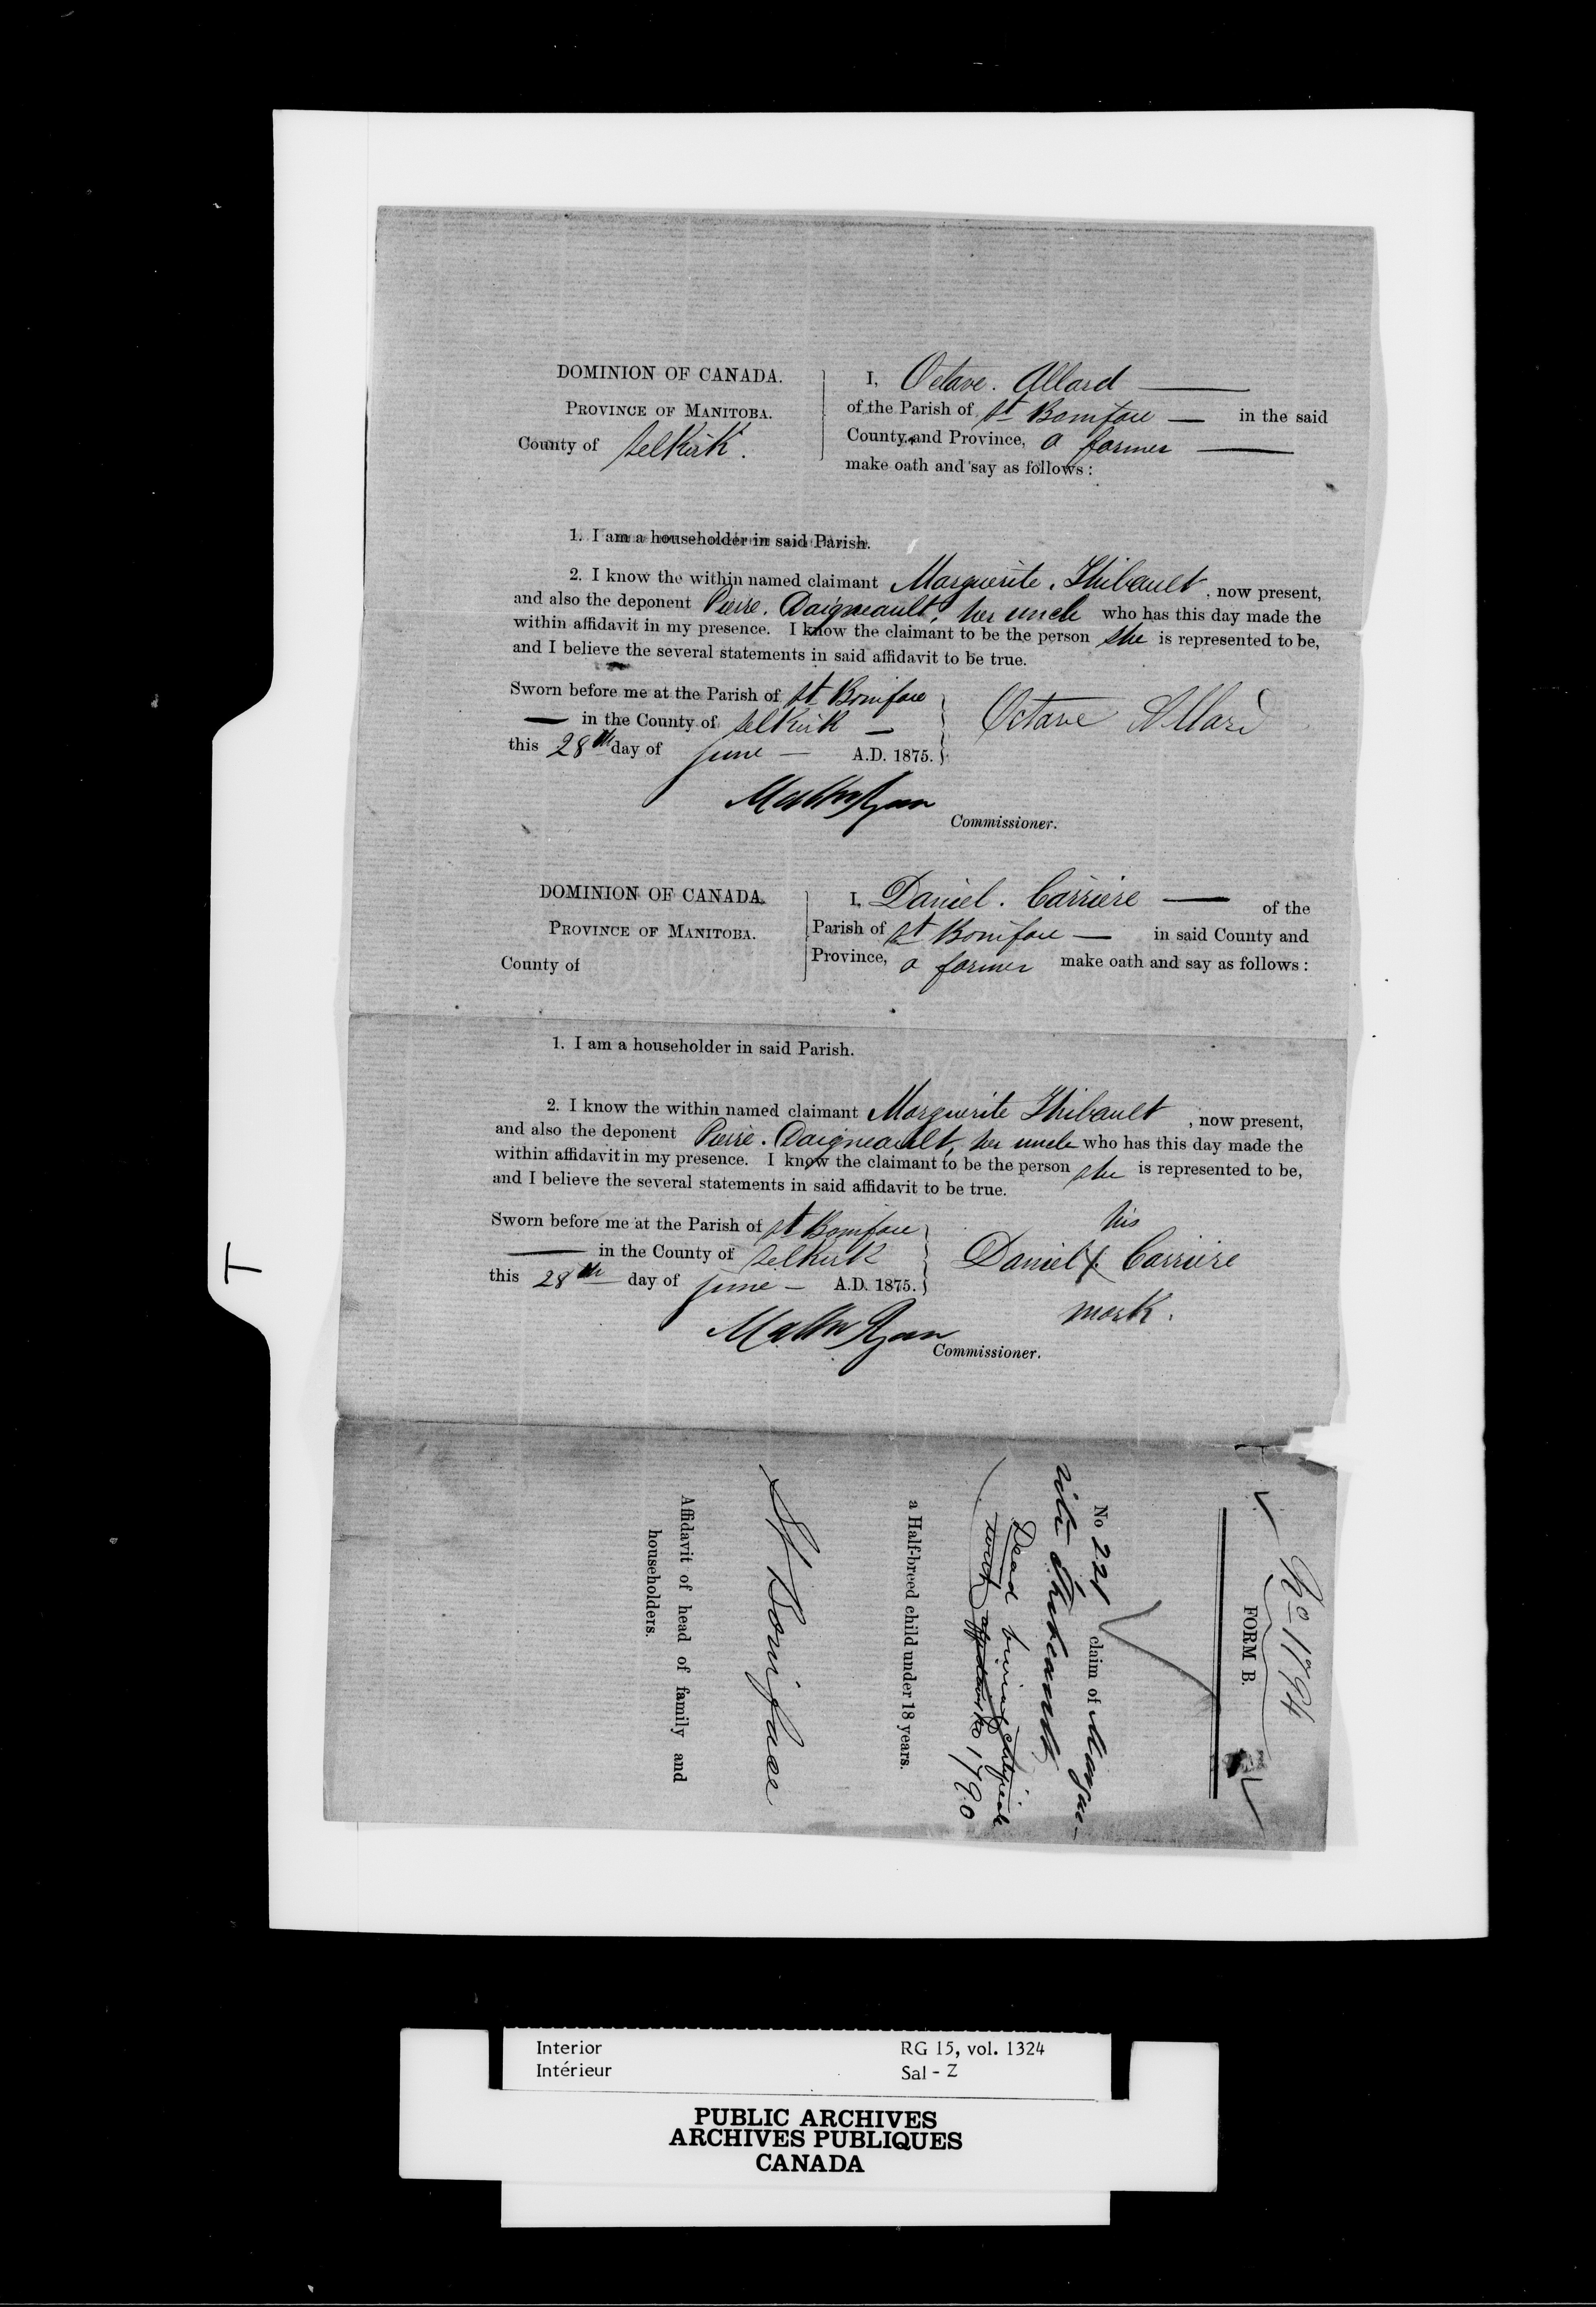 DOMINION OF CANADA.
PROVINCE OF MANITOBA.
County of Selkirk.
I, Octave. Allard
of the Parish of St Boniface in the said
County and Province, a farmer
make oath and say as follows:
1. I am a householder in said Parish.
2. I know the within named claimant Marguerite. Thibault, now present,
and also the deponent Pierre. Daigneault, her uncle who has this day made the
within affidavit in my presence. I know the claimant to be the person she is represented to be,
and I believe the several statements in said affidavit to be true.
Sworn before me at the Parish of St Boniface
in the County of Selkirk
this 28th day of June A.D. 1875.
Octave Allard
Commissioner.
DOMINION OF CANADA.
PROVINCE OF MANITOBA.
County of
I, Daniel. Carriere of the
Parish of St Boniface in said County and
Province, a farmer make oath and say as follows:
1. I am a householder in said Parish.
2. I know the within named claimant Marguerite Thibault, now present,
and also the deponent Pierre. Daigneault, her uncle who has this day made the
within affidavit in my presence. I know the claimant to be the person she is represented to be,
and I believe the several statements in said affidavit to be true.
Sworn before me at the Parish of St Boniface
in the County of Selkirk
this 28th day of June A.D. 1875.
his
Daniel X Carriere
mark.
Commissioner.
No 1794
FORM B.
No 221 claim of Margue-
rite Thibeault
Dead
1790
a Half-breed child under 18 years.
St Boniface
Affidavit of head of family and
householders.
T
Interior
Intérieur
RG 15, vol. 1324
Sal - Z
PUBLIC ARCHIVES
ARCHIVES PUBLIQUES
CANADA